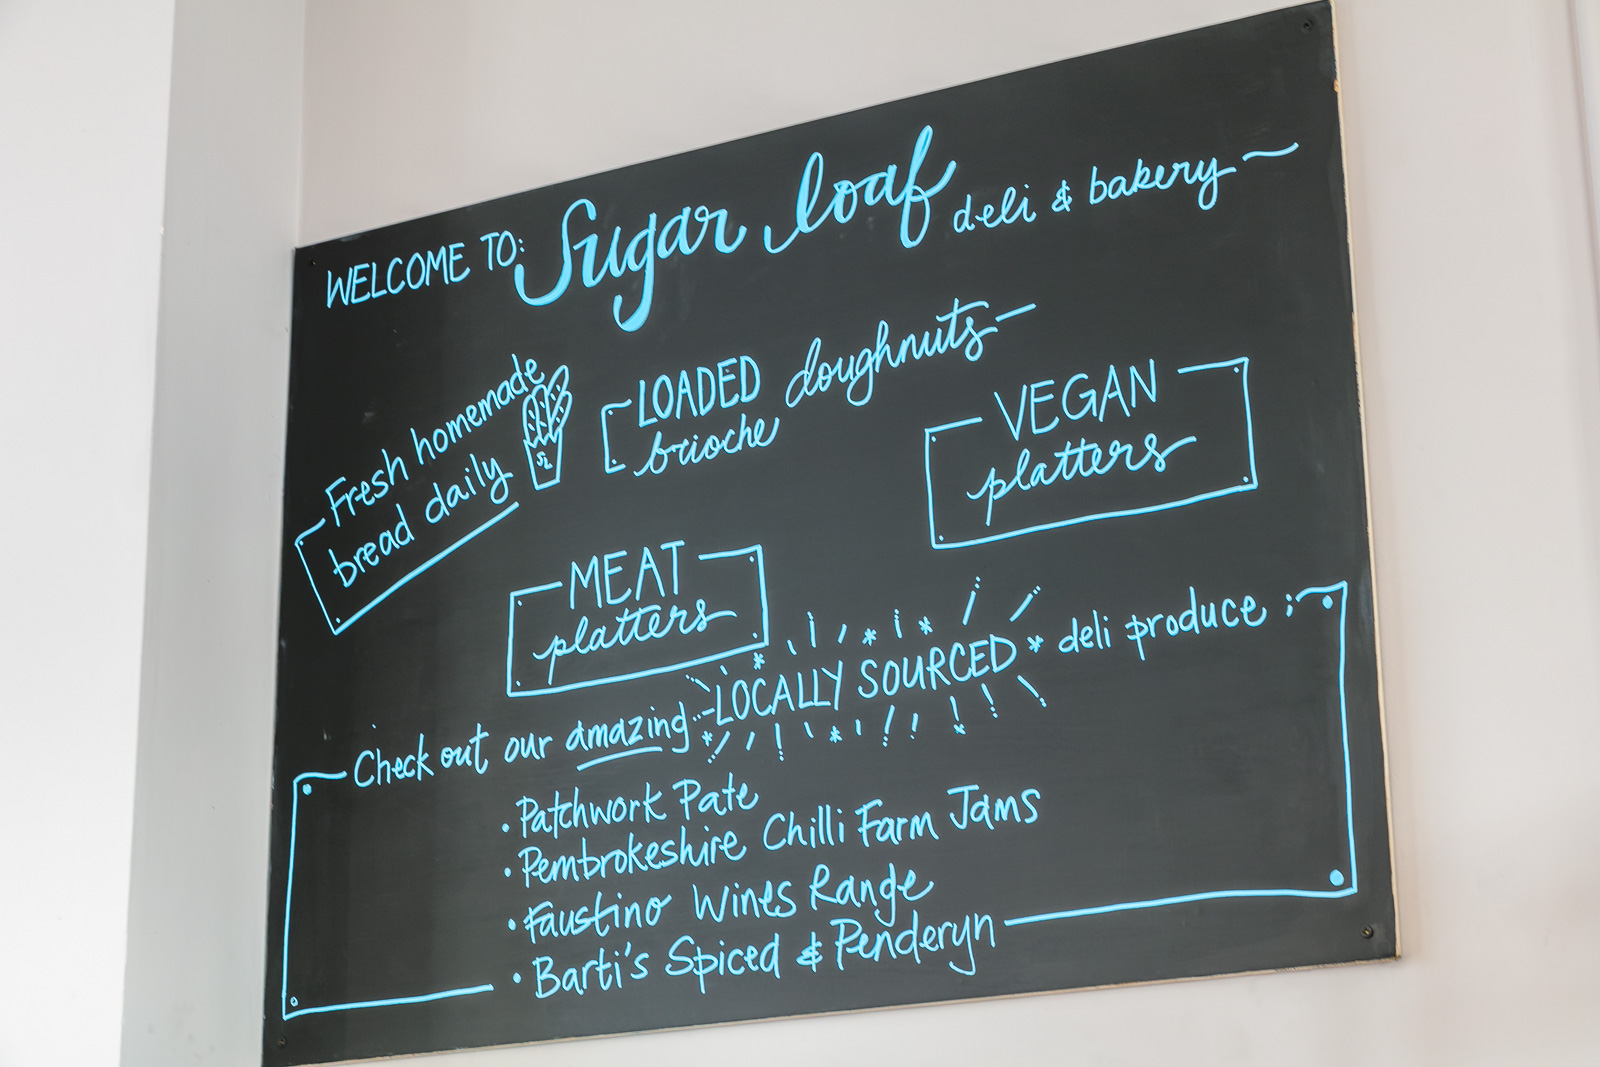 WELCOME TO: Sugar loaf deli & bakery
Fresh homemade
bread daily
SL
LOADED doughnuts
brioche
VEGAN
platters
MEAT
platters
Check out our amazing LOCALLY SOURCED * deli produce :
• Patchwork Pate
• Pembrokeshire Chilli Farm Jams
• Faustino Wines Range
• Barti's Spiced & Penderyn